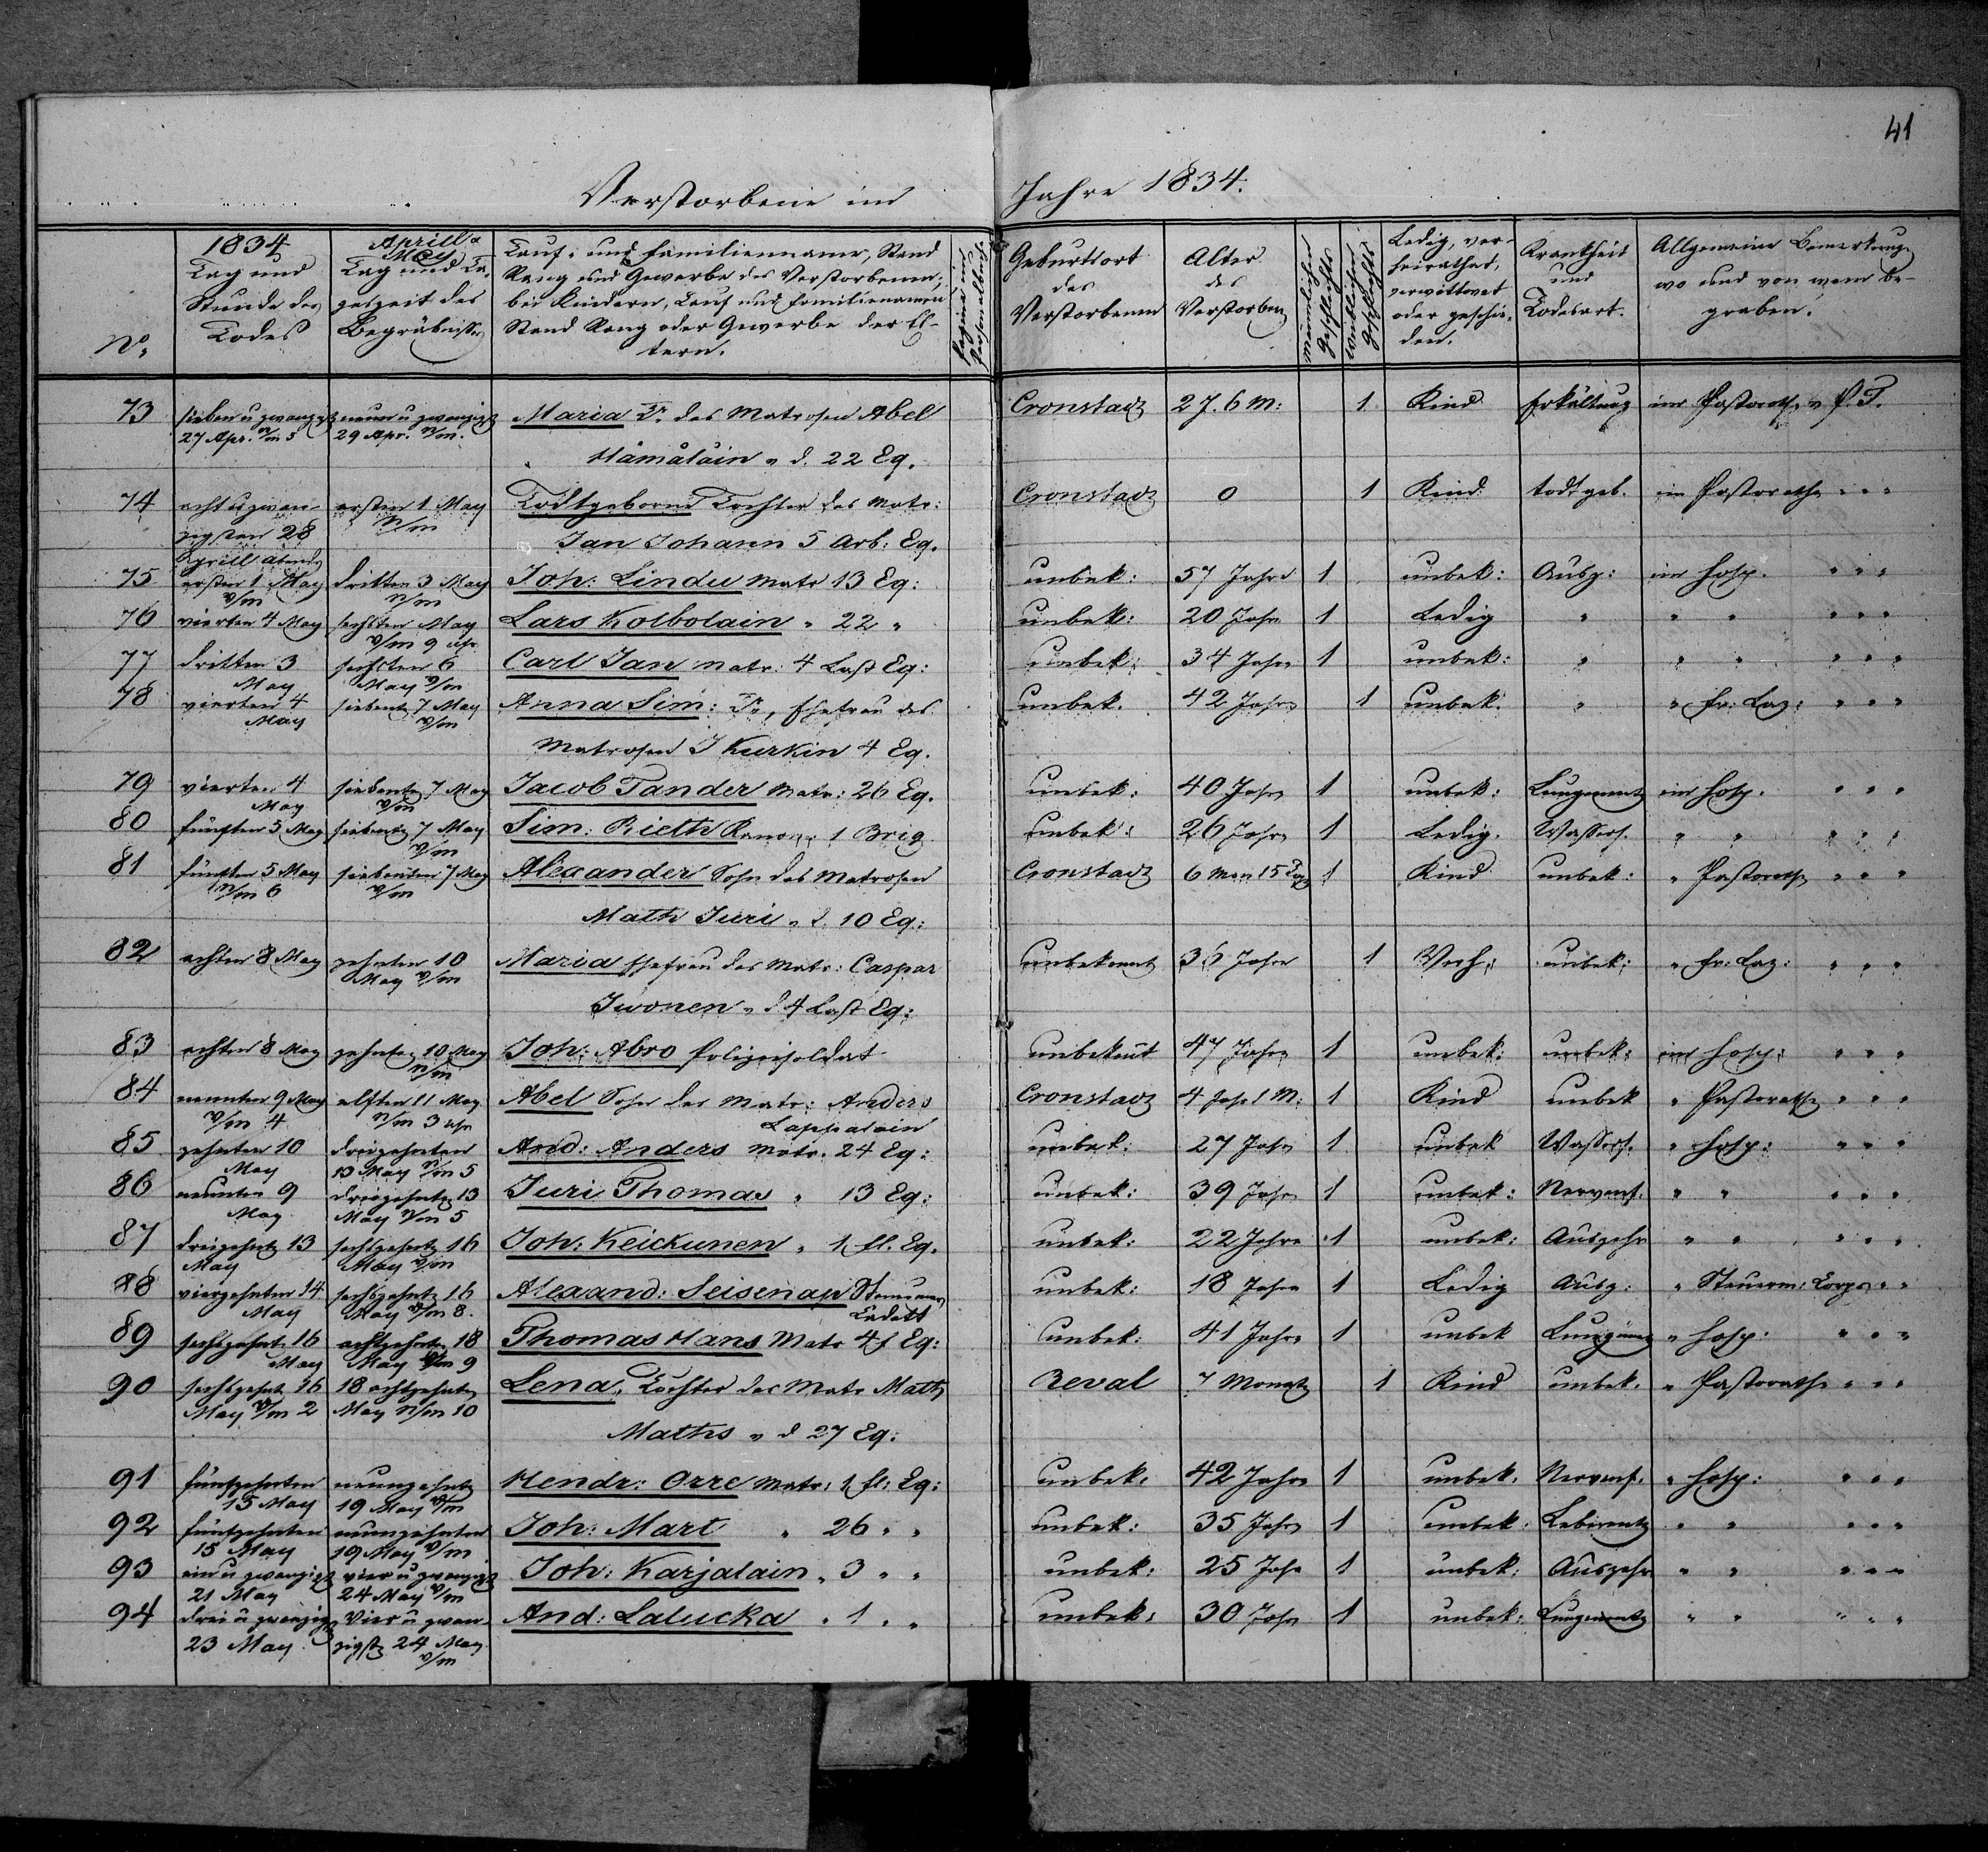 41
Verstorbene im Jahre 1834.
No.
1834 Tag und Stunde des Todes
Aprill & May Tag und Tageszeit des Begräbnisses
Tauf- und Familienname, Stand
Rang und Gewerbe des Verstorbenen,
bei Kindern, Tauf und Familiennamen
Stand Rang oder Gewerbe der El-
tern.
Pagina im Personalbuch
Geburtsort des Verstorbenen
Alter des Verstorbenen
männlichen Geschlechts
weiblichen Geschlechts
Ledig, ver-
heirathet,
verwittwet
oder geschie-
den.
Krankheit und Todesart.
Allgemeine Bemerkung
wo und von wem be-
graben.
73 sieben u zwanzigst neun u zwanzigst Maria Tr. des Matrosen Abel Cronstadt 2 J. 6 M: 1 Kind Erkältung im Pastorathe v P. T.
27 Apr. n/m 5 29 Apr. n/m.
Hämäläin v d. 22 Eq.
74 acht u zwan- ersten 1 May Todtgeborne Tochter des Matr: Cronstadt 0 1 Kind todtgeb. im Pastorathe " " "
zigsten 28 n/m
Jan Johann 5 Arb: Eq.
Aprill abends
75 ersten 1 May dritten 3 May Joh: Lindu Matr 13 Eq: unbek: 57 Jahre 1 unbek: Ausz: im Hosp. " " "
v/m n/m
76 vierten 4 May sechsten May Lars Kolbolain " 22 " unbek: 20 Jahr 1 Ledig " " " " " "
v/m 9 uhr
77 dritten 3 sechsten 6 Carl Jan Matr: 4 Last Eq: unbek: 34 Jahre 1 unbek: " " " " " "
May May v/m
78 vierten 4 siebent 7 May Anna Sim: Tr, Ehefrau des unbek. 42 Jahre 1 unbek. " " fr: Laz: " " "
May v/m
Matrosen J Kurkin 4 Eq.
79 vierten 4 siebente 7 May Jacob Tander Matr: 26 Eq. unbek: 40 Jahre 1 unbek: Lungenentz im Hosp. " " "
May v/m
80 fünften 5 May siebente 7 May Sim: Rieth Kanon: 1 Brig unbek: 26 Jahre 1 Ledig. Wassers. " " " " "
v/m
81 fünften 5 May siebenten 7 May Alexander Sohn des Matrosen Cronstadt 6 Mon 15 Tag 1 Kind unbek: " Pastorathe " " "
n/m 6 v/m
Math Juri v d. 10 Eq:
82 achten 8 May zehnten 10 Maria Ehefrau des Matr: Caspar unbekannt 36 Jahre 1 Verh: unbek: " fr: Laz: " " "
May v/m
Iwonen v d 4 Last Eq:
83 achten 8 May zehnte 10 May Joh: Abro Polizeisoldat unbekant 47 Jahre 1 unbek: unbek: im Hosp: " " "
n/m
84 neunten 9 May elften 11 May Abel Sohn des Matr: Anders Cronstadt 4 Jah 1 M: 1 Kind unbek " Pastorathe " " "
v/m 4 n/m 3 uhr Lappalain
85 zehnten 10 dreizehnten And: Anders Matr. 24 Eq: unbek: 27 Jahr 1 unbek Wassers. " Hosp: " " "
May 13 May n/m 5
86 neunten 9 dreizehnte 13 Juri Thomas " 13 Eq: unbek: 39 Jahr 1 unbek: Nervenf. " " " " "
May May n/m 5
87 dreizehnt 13 sechszehnte 16 Joh: Keickunen " 1 fl. Eq. unbek: 22 Jahre 1 unbek: Auszehr " " " " "
May May v/m
88 vierzehnten 14 sechszehnte 16 Alexand: Seisenap Steuermann unbek: 18 Jahre 1 Ledig Ausz: " Steuerm: Corps " "
May May v/m 8. Cadett
89 sechszehnt 16 achtzehnten 18 Thomas Hans Matr 4 f Eq: unbek: 41 Jahre 1 unbek " Hosp: " " "
May May v/m 9
90 sechszehnt 16 18 achtzehnte Lena, Tochter des Matr Math Reval 7 Monate 1 Kind unbek. " Pastorathe " " "
May v/m 2 May n/m 10
Maths v d 27 Eq:
91 fünfzehnten neunzehnte Hendr: Orre Matr: 1 fl: Eq: unbek. 42 Jahre 1 unbek. Nervenf. " Hosp: " " "
15 May 19 May v/m
92 fünfzehnten neunzehnten Joh: Mart " 26 " " unbek: 35 Jahre 1 unbek: " " " " "
15 May 19 May v/m
93 ein u zwanzigst vier u zwanzigst Joh: Karjalain " 3 " " unbek: 25 Jahr 1 unbek: Auszehr " " " " "
21 May 24 May v/m
94 drei u zwanzigst Vier u zwan- And: Lalucka " 1 " " unbek: 30 Jahr 1 unbek: Lungenentz " " " " "
23 May zigst 24 May
v/m